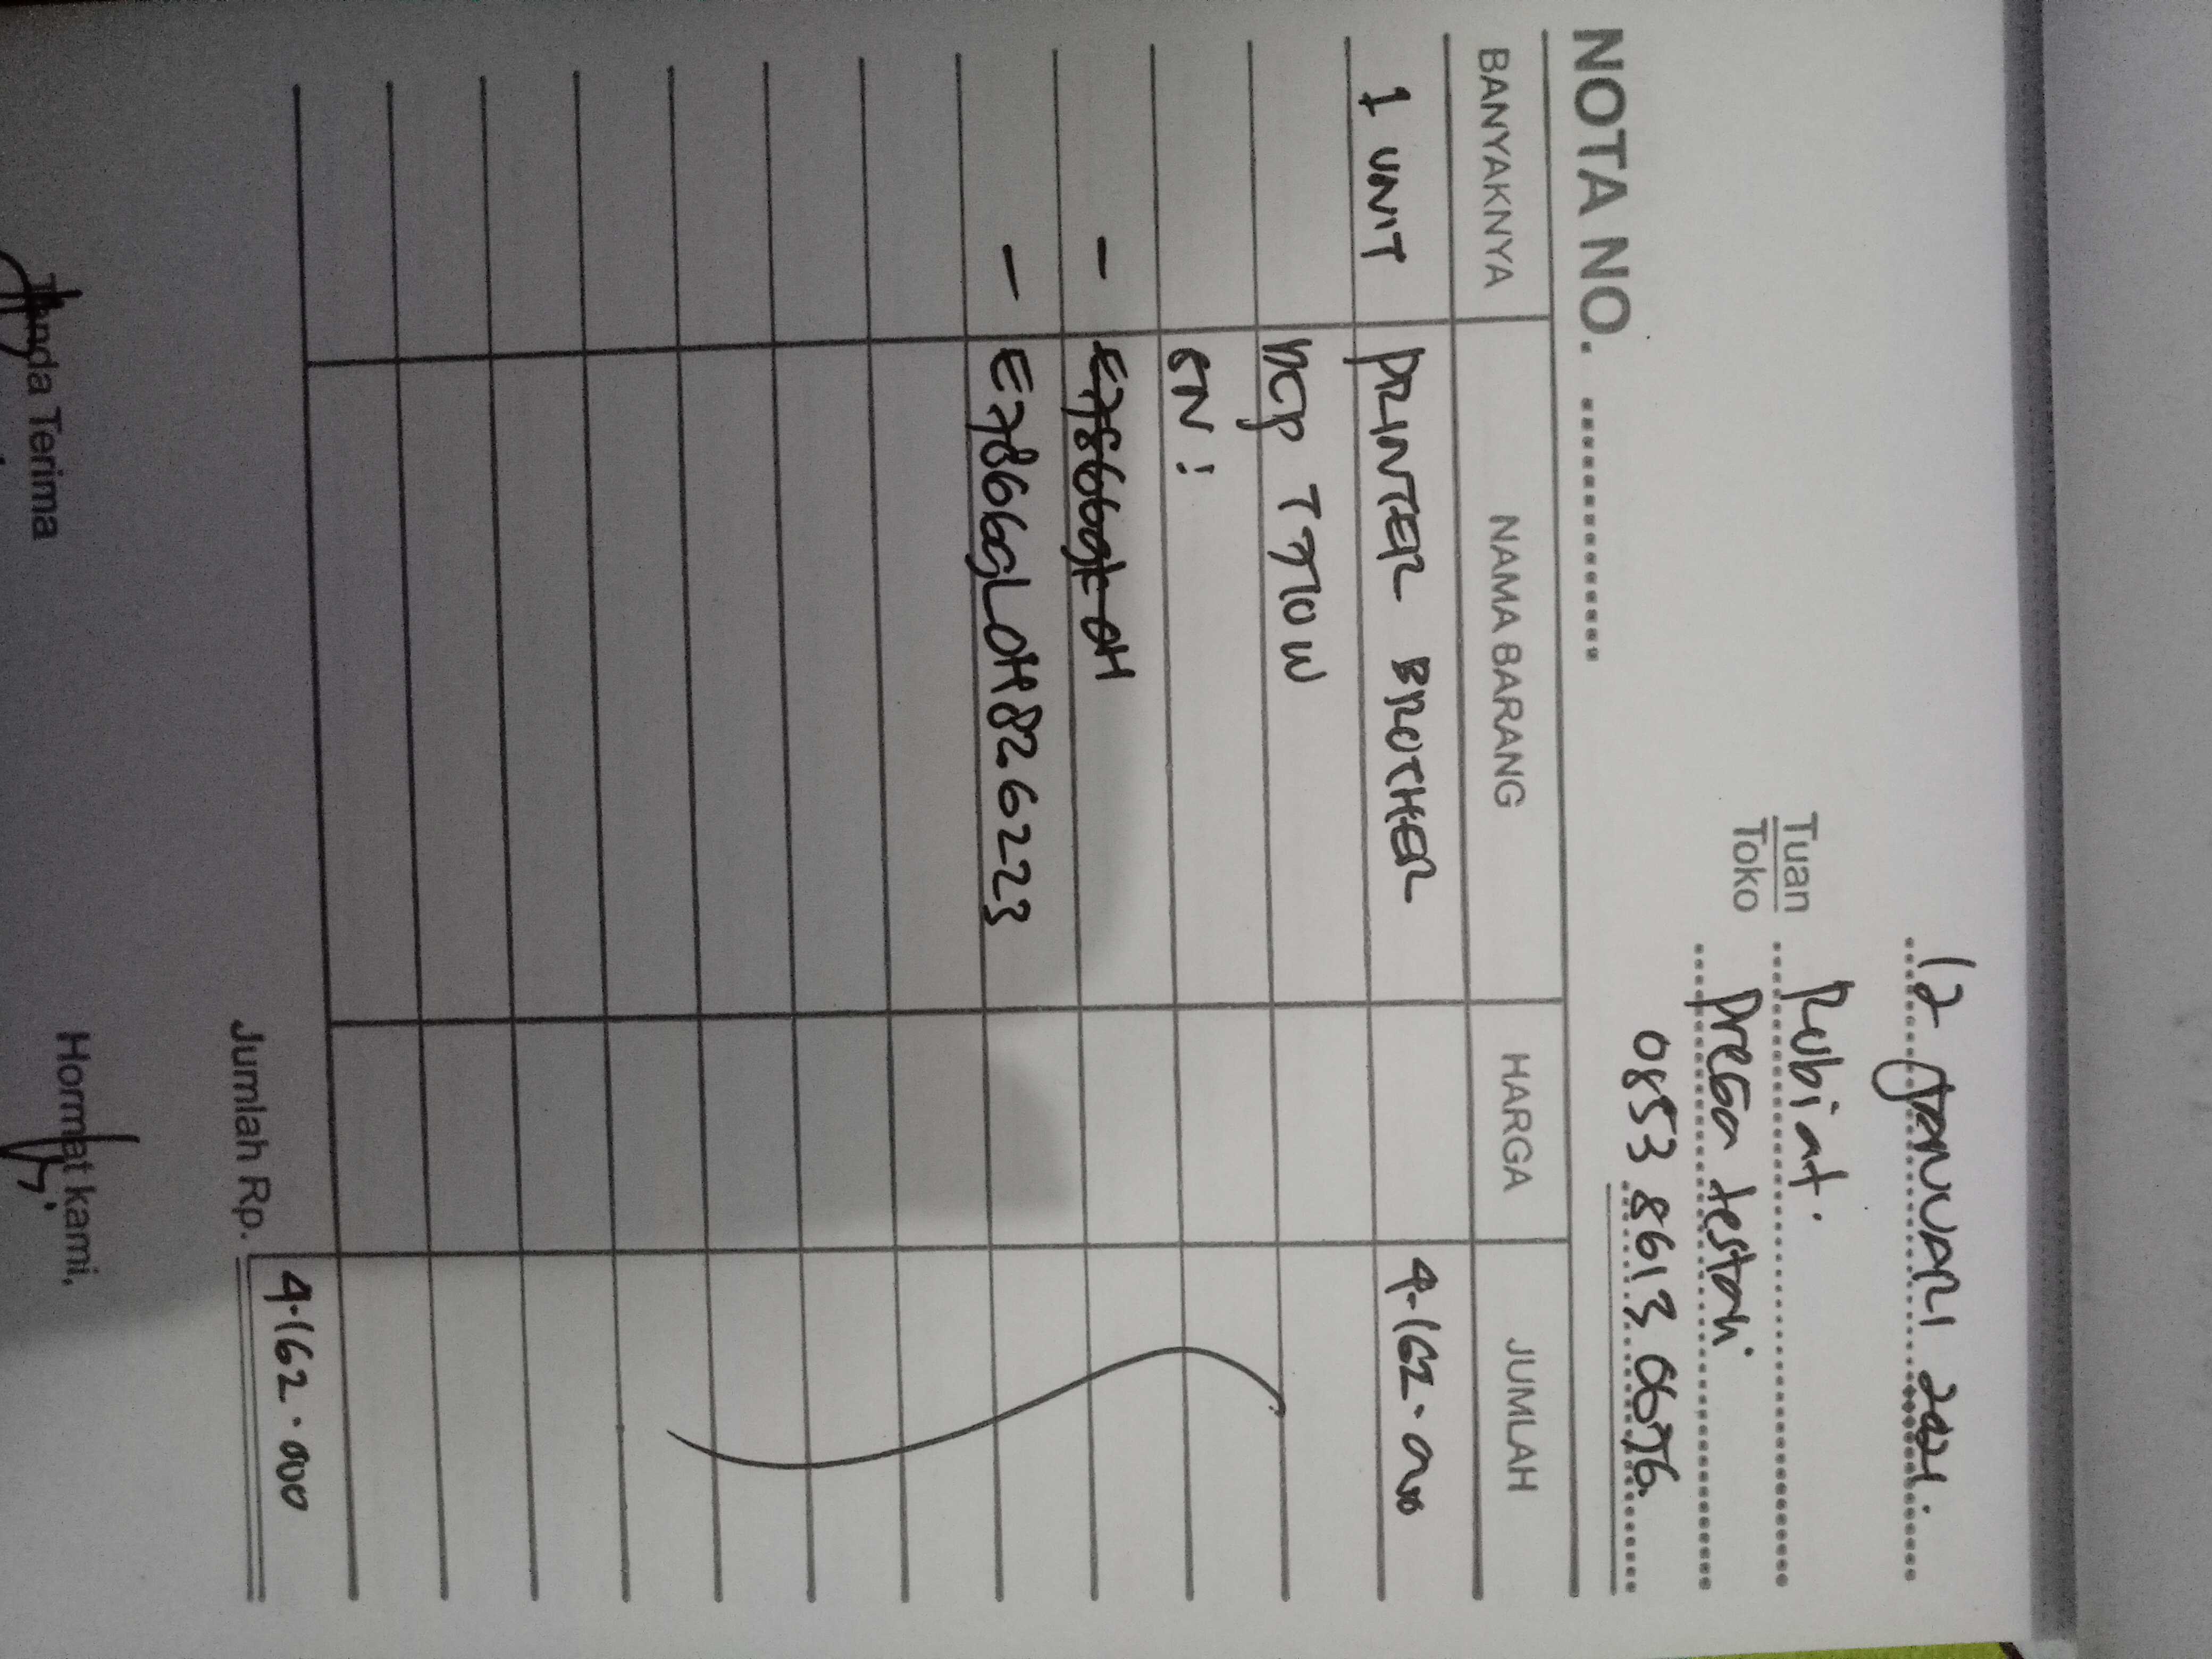 12 JANUARI 2021.
Tuan Rubiat.
Toko Presa testari
0853 8613 0676
NOTA NO. ................
BANYAKNYA NAMA BARANG HARGA JUMLAH
1 UNIT PRINTER BROTHER 4.162.000
DCP T710W
SN :
- E78666
- E78666L0H826223
Jumlah Rp. 4.162.000
Tanda Terima Hormat kami,